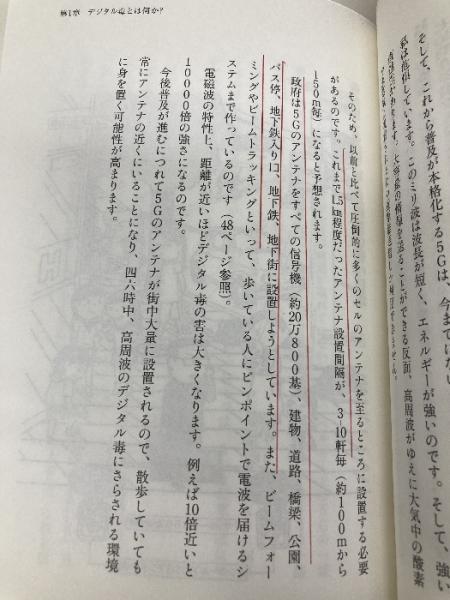 そして、これから普及が本格化する5Gは、今までにない
使用しています。このミリ波は波長が短く、エネルギーが強いのです。そして、強い
大容量の情報を送ることができる反面、高周波がゆえに大気中の酸素
第1章 デジタル毒とは何か?
そのため、以前と比べて圧倒的に多くのセルのアンテナを至るところに設置する必要
があるのです。これまで1.5km程度だったアンテナ設置間隔が、3-10軒毎（約100mから
150m毎）になると予想されます。
政府は5Gのアンテナをすべての信号機（約20万800基）、建物、道路、橋梁、公園、
バス停、地下鉄入り口、地下鉄、地下街に設置しようとしています。また、ビームフォー
ミングやビームトラッキングといって、歩いている人にピンポイントで電波を届けるシ
ステムまで作っているのです（48ページ参照）。
電磁波の特性上、距離が近いほどデジタル毒の害は大きくなります。例えば10倍近いと
10000倍の強さになるのです。
今後普及が進むにつれて5Gのアンテナが街中大量に設置されるので、散歩していても
常にアンテナの近くにいることになり、四六時中、高周波のデジタル毒にさらされる環境
に身を置く可能性が高まります。